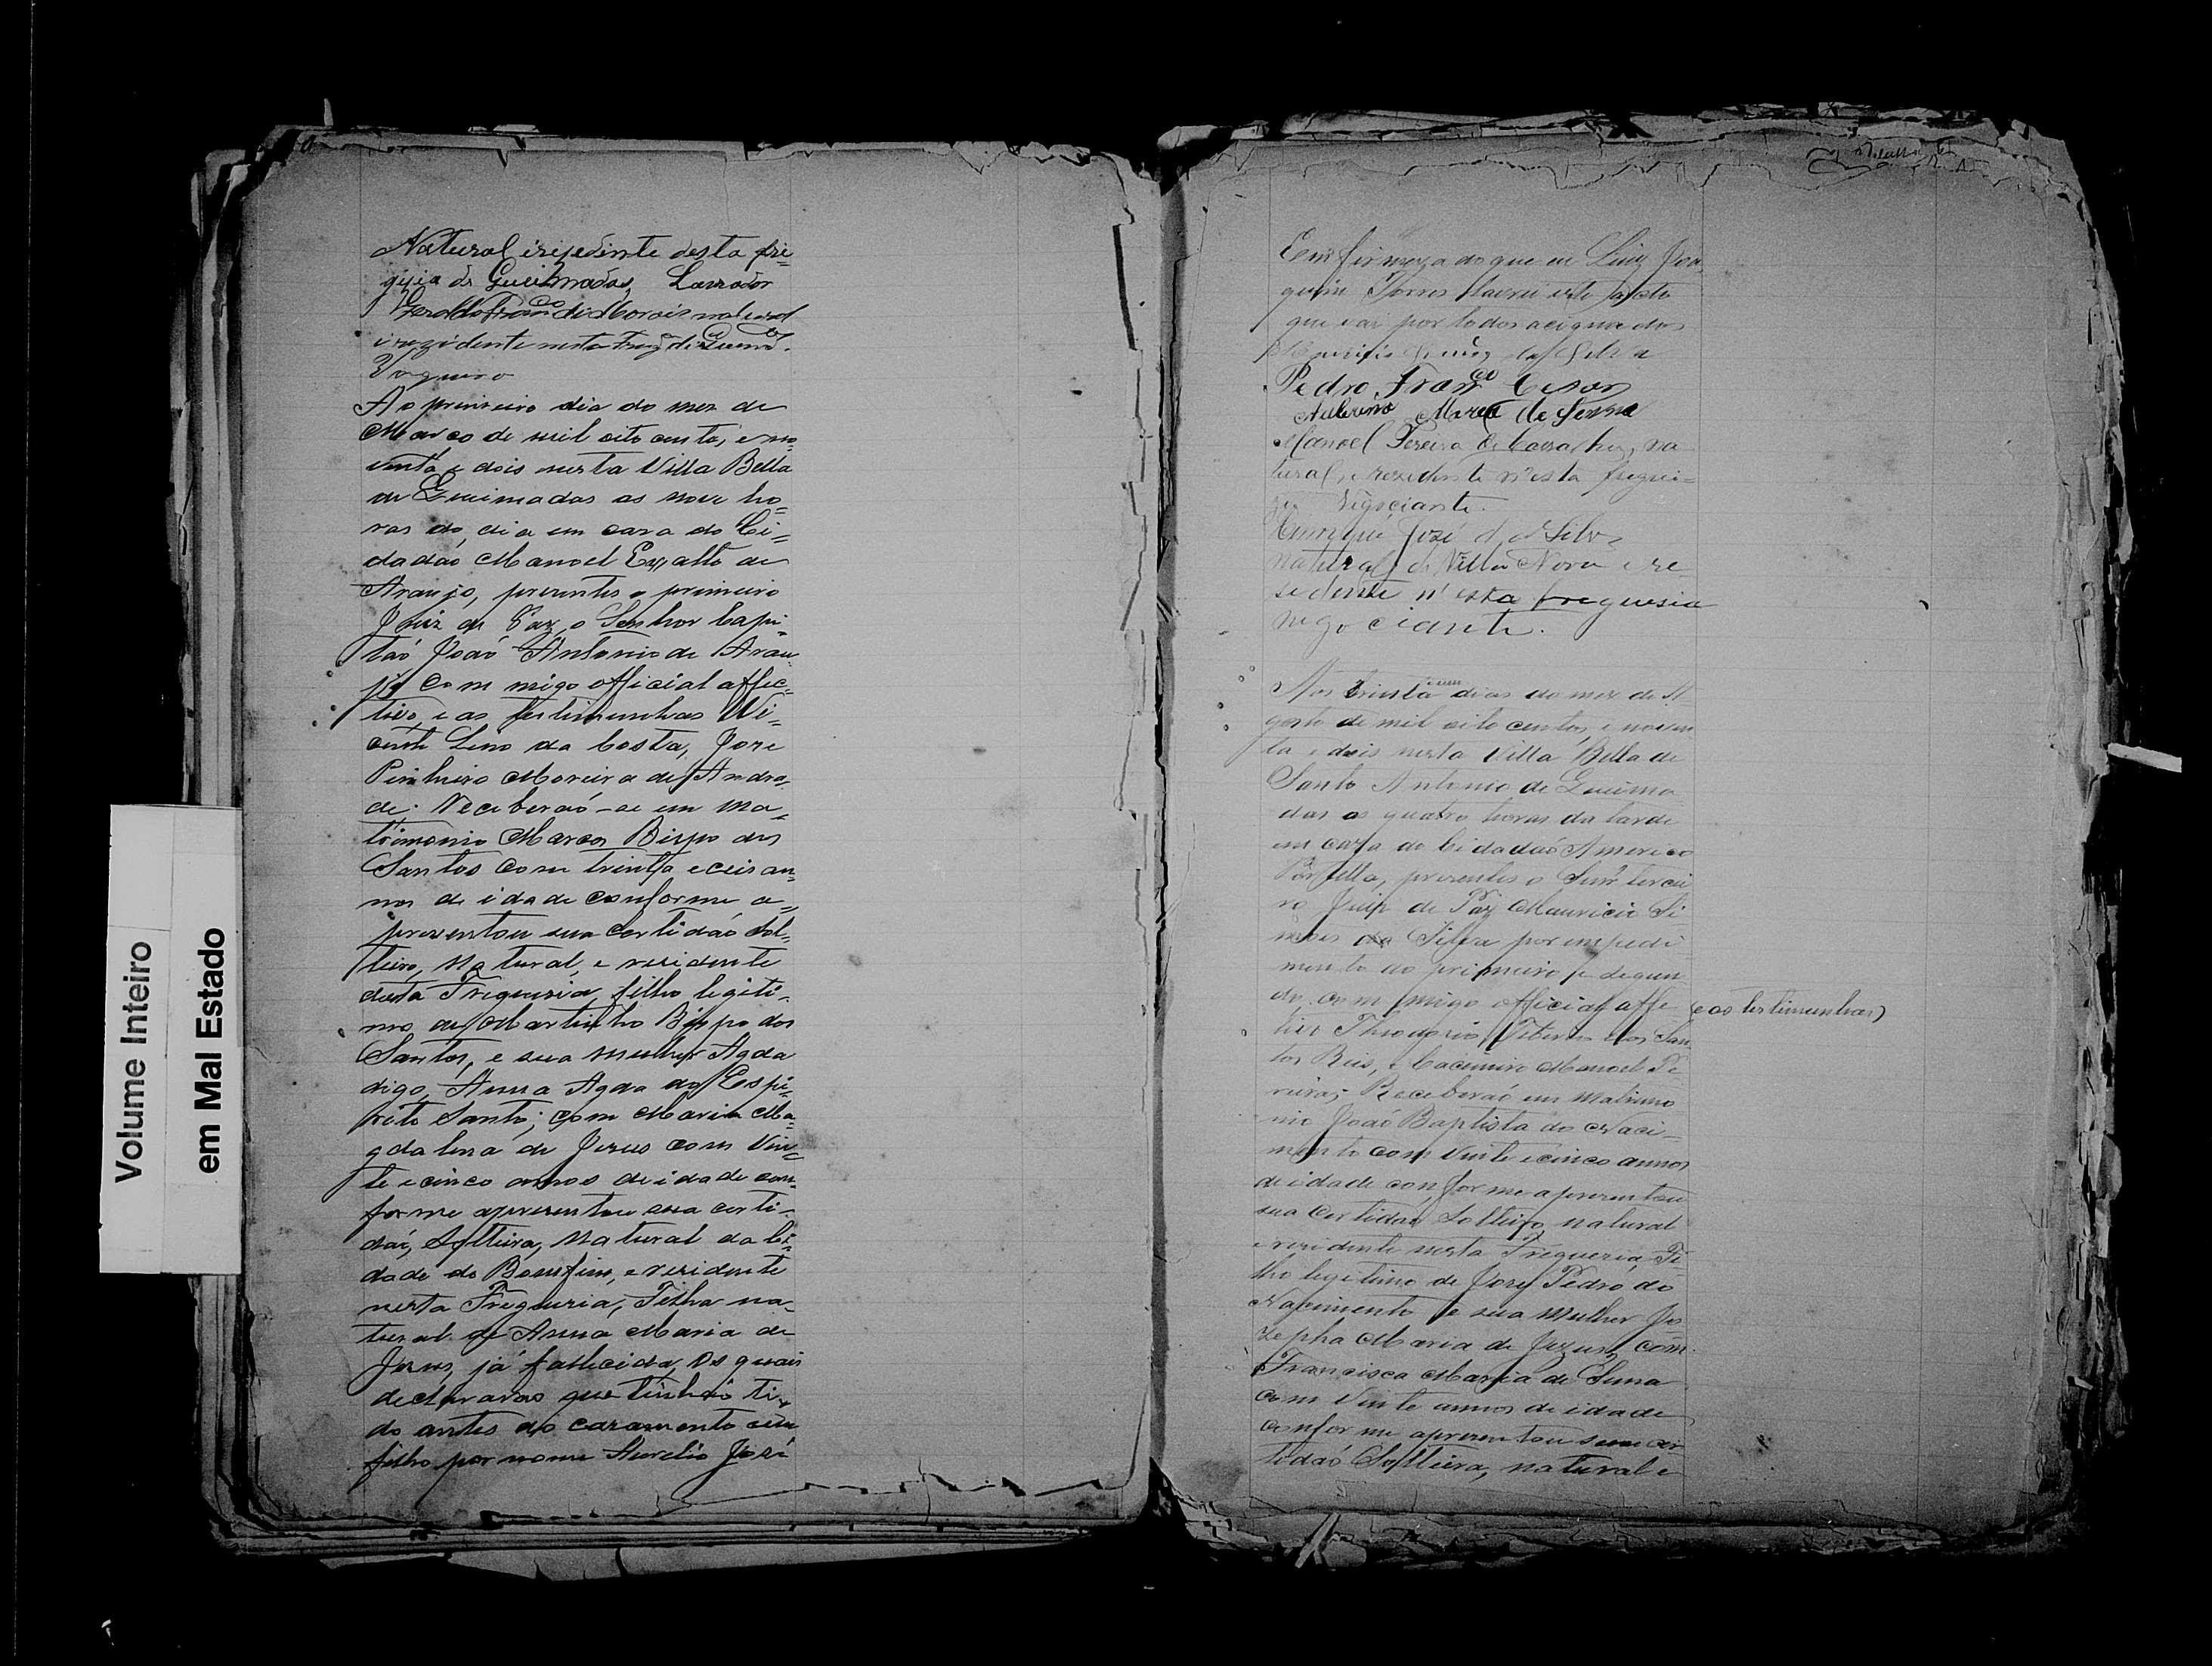 Natural irezedente desta fre=
guia de Queimadas, Lavrador
Geraldo Franco. de Morais natural
i rezidente nesta Freg de Queimd.
Vaqueiro
Ao primeiro dia do mez de
Março de mil oito centos, e no=
venta e dois nesta Villa Bella
de Queimadas as nove ho=
ras do dia em caza do Ci=
dadão Manoel Exaltº de
Araujo, prezentes o primeiro
Juiz de Paz, o Senhor Capi=
tão João Antonio de Arau
jo Com migo official affec=
tivo, e as testimunhas Vi=
cente Lino da Costa, Joze
Pinheiro Moreira de Andra,
de; Receberaó-se em Ma=
trimonio Marcos Bispo dos
Santos com trinta e ceis an=
nos de idade conforme a=
prezentou sua Certidaó Sol=
teiro, Natural, e rezidente
desta Freguezia, filho legiti-
mo de Martinho Bispo dos
Santos, e sua Mulher Agda
digo, Anna Agda do Espi=
rito Santo; com Maria Ma=
gdalena de Jezus com Vin=
te e cinco annos de idade con=
forme aprezentou sua certi-
daó, Solteira, Natural da Ci=
dade do Bomfim, e rezidente
nesta Freguezia, Filha na=
tural de Anna Maria de
Jezus, já fallecida, Os quais
declararaó que tinhaó ti=
do antes do cazamento um
filho por nome Aurelio José
Volume Inteiro
em Mal Estado
E em firmeza do que eu Luiz Joa
quim Torres Lavrei este acto
que vai por todos acignados
Mauricio Simões da Silva
Pedro Franco Cezar
Maria de Senna
Manoel Pereira de Carvalho, na
tural, e rezidente n'esta fregue=
zia Negociante.
Henrique José da Silva
natural de Villa Nova e re
sedente n'esta freguesia
negociante.
Aos trinta e um dias do mez de A=
gosto de mil oito centos, e noven
ta e dois nesta Villa Bella de
Santo Antonio de Queima
das as quatro horas da tarde
em caza do Cidadaó Americo
Portella, prezentes o Senr tercei
ro Juiz de Paz Mauricio Si
mões da Silva por impedi
mento do primeiro, e segun
do, com migo official affe (e as testimunhas)
tivo Theodorio Tiberio dos San
tos Reis, e Cacimiro Manoel Pe
reira; Receberaó em Matrimo
nio João Baptista do Naci=
mento com Vinte e cinco annos
de idade conforme aprezentou
sua Certidaó Solteiro, natural
e rezidente nesta Freguezia, Fi=
lho legitimo de Joze Pedro do
Nacimento e sua Mulher Jo
zepha Maria de Jezus, com
Francisca Maria de Sena
com Vinte annos de idade
conforme aprezentou sua cer
tidaó Solteira, natural e